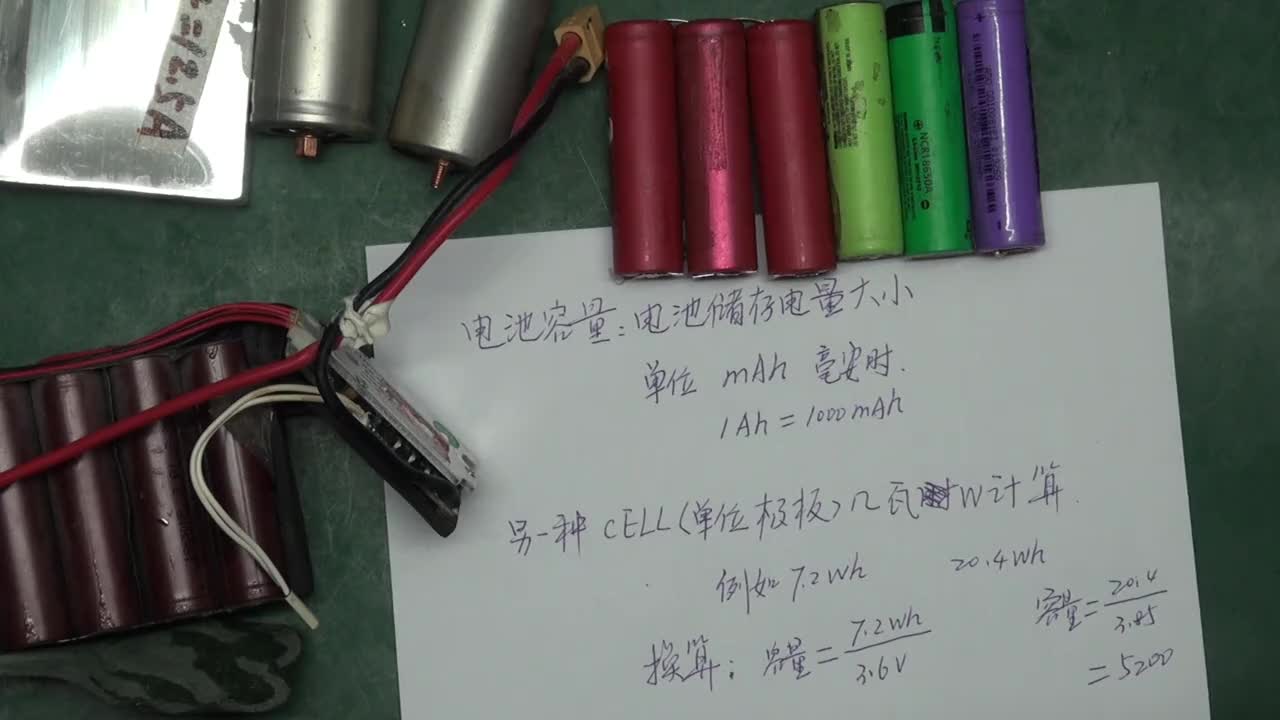 电池容量：电池储存电量大小
单位 mAh 毫安时.
1Ah = 1000mAh
另一种 CELL（单位极板）几瓦W计算.
例如 7.2Wh
20.4Wh
换算：容量 = 7.2Wh / 3.6V
容量 = 20.4 / 3.85
= 5200
NCR18650A